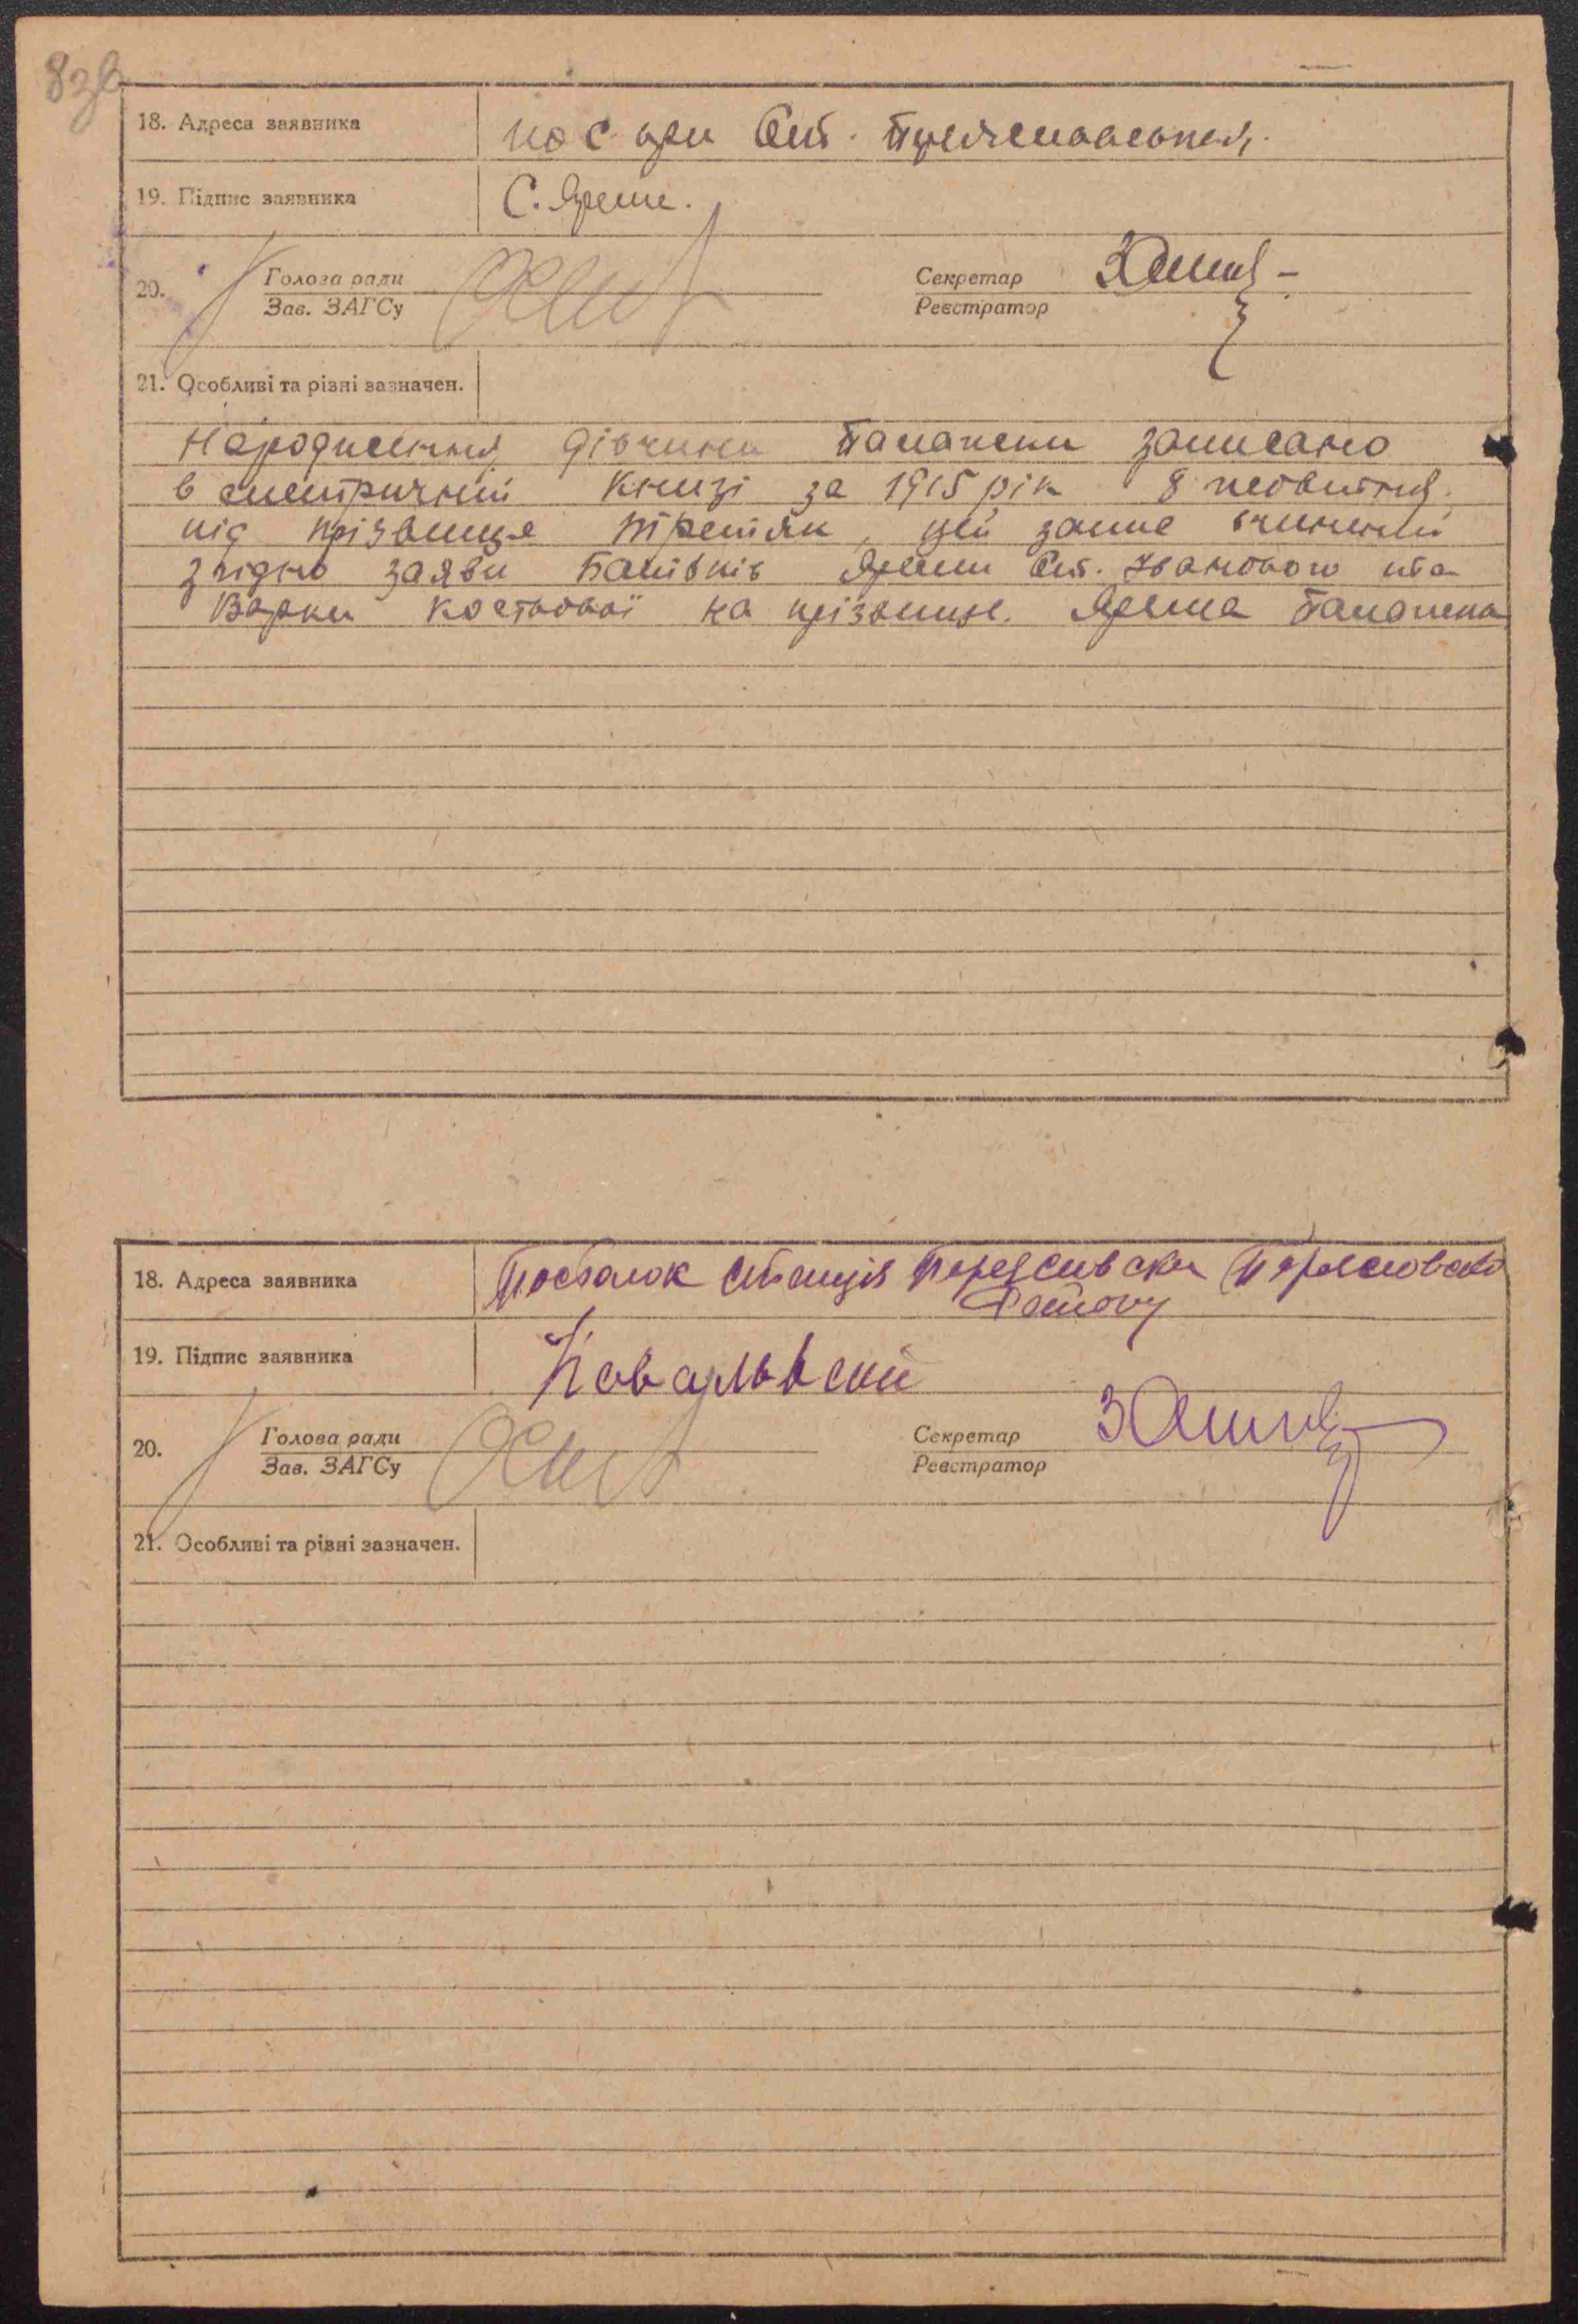 83в
18. Адреса заявника
пос. при Ст.
19. Підпис заявника
С. Яреше.
20. Голова ради
Зав. ЗАГСу
Секретар
Реєстратор
21. Особливі та різні зазначен.
Народження дівчини записано
в метричний книзі за 1915 рік 8 жовтня.
під прізвище Третяк, цей запис вчинений
згідно заяви батьків Яреши Ст. Івановою та
Варки Костьової на прізвище. Яреша
18. Адреса заявника
Посьолок станція
19. Підпис заявника
Ковальский
20. Голова ради
Зав. ЗАГСу
Секретар
Реєстратор
21. Особливі та різні зазначен.